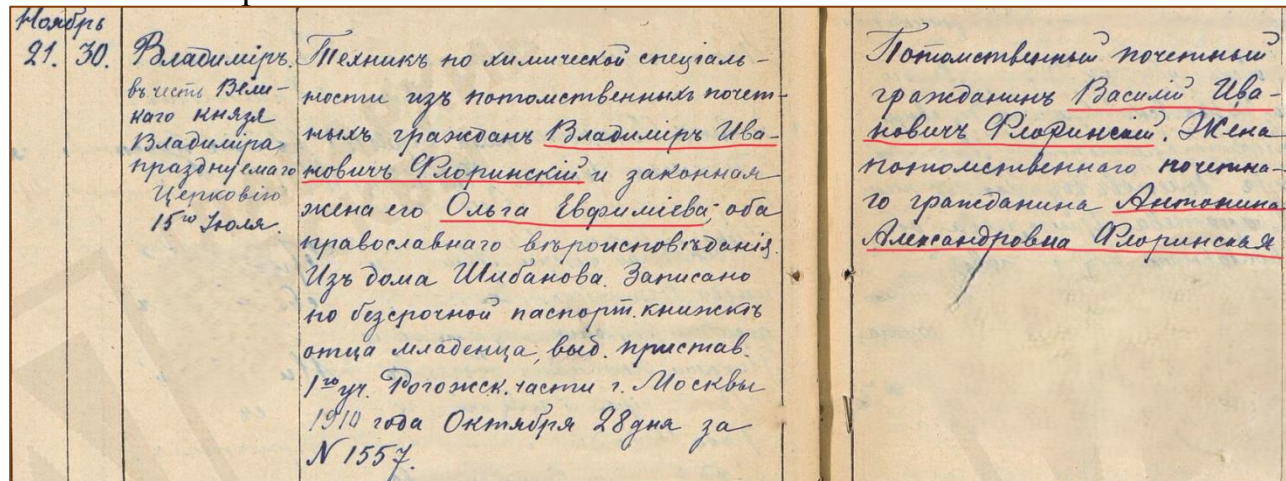 Ноябрь
21. 30.
Владиміръ.
въ честь Вели-
каго Князя
Владиміра,
празднуемаго
Церковію
15го Іюля.
Техникъ по химической спеціаль-
ности изъ потомственныхъ почет-
ныхъ гражданъ Владиміръ Ива-
новичъ Флоринскій и законная
жена его Ольга Евфиміева; оба
православнаго вѣроисповѣданія.
Изъ дома Шибанова. Записано
по безсрочной паспорт. книжкѣ
отца младенца, выд. пристав.
1го уч. Рогожск. части г. Москвы
1910 года Октября 28 дня за
N 1557.
Потомственный почетный
гражданинъ Василій Ива-
новичъ Флоринскій. Жена
потомственнаго почетна-
го гражданина Антонина
Александровна Флоринская